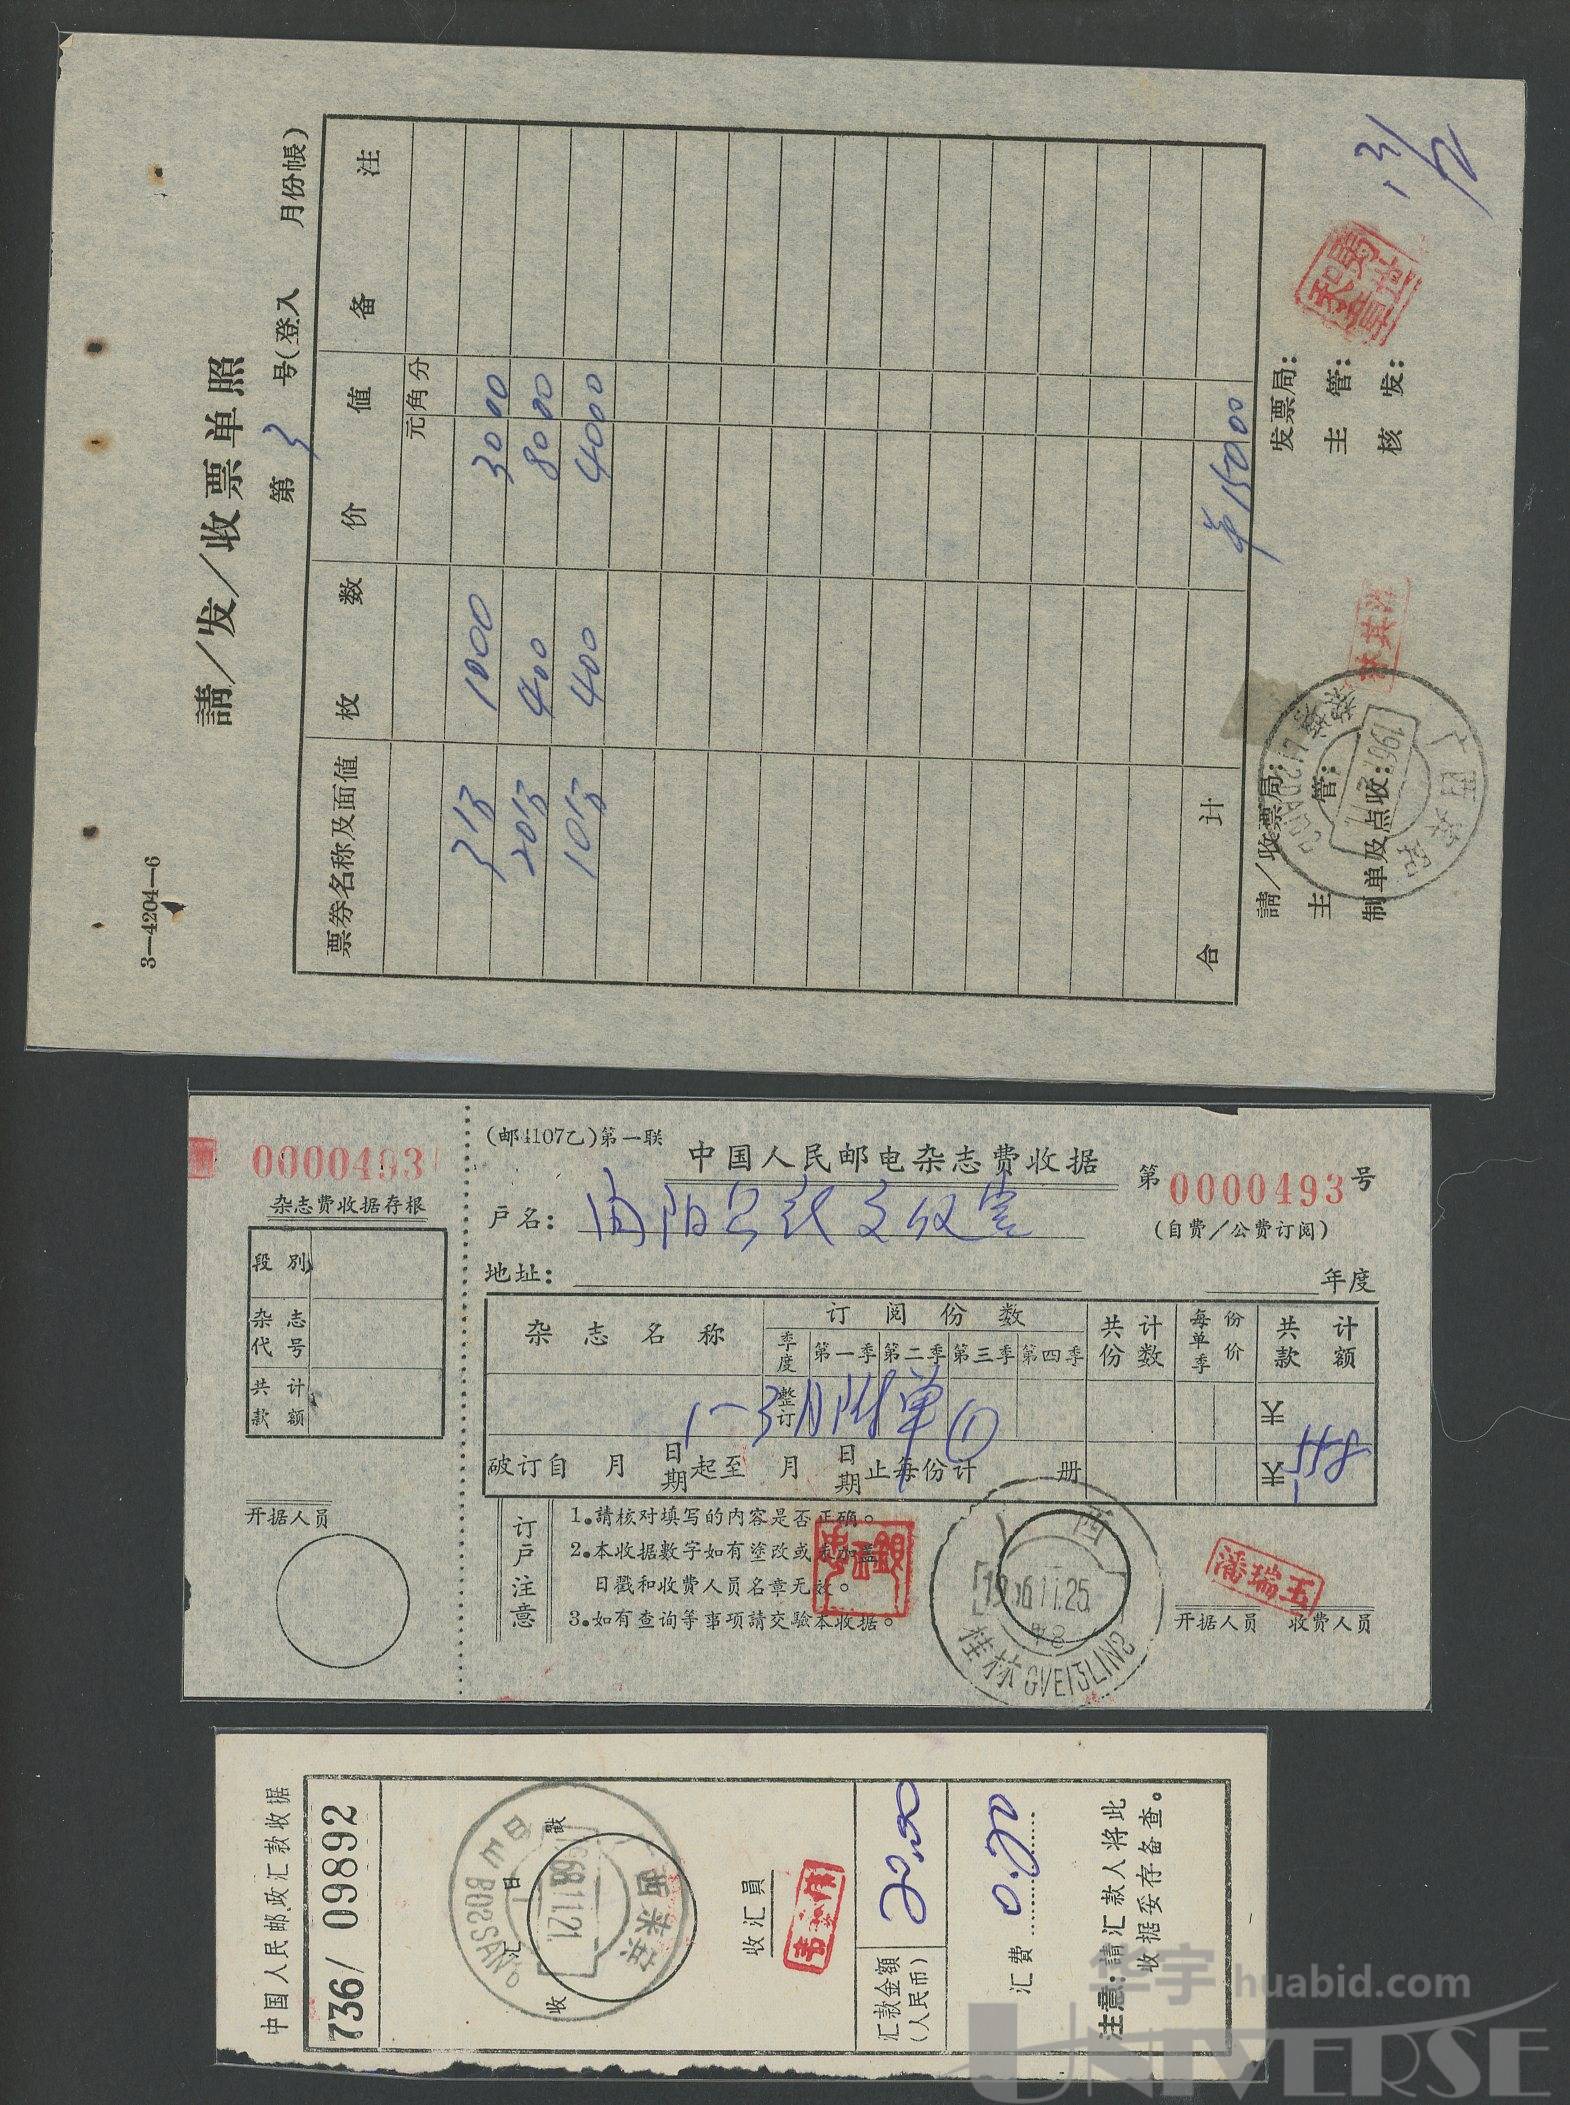 3—4204—6
請／发／收票单照
第 3 号（登入 月份帳）
票券名称及面值 枚数 价值 备注
元 角 分
3分 1000 3000
20分 400 8000
10分 400 4000
合计 15000
請／收票局： 发票局：
主管： 主管：
制单及点收： 核发：
0000493
杂志费收据存根
段别
杂志代号
共计款额
开据人员
(邮4107乙)第一联
中国人民邮电杂志费收据
第0000493号
户名：
(自费／公费订阅)
地址： 年度
杂志名称 订阅份数 共计份数 每份单季价 共计款额
季度 第一季 第二季 第三季 第四季
整订
1—3月附单①
破订自 月 日期 起至 月 日期 止每份计 册
订户注意
1。請核对填写的内容是否正确。
2。本收据数字如有塗改或未加盖
日戳和收费人员名章无效。
3。如有查询等事项請交驗本收据。
桂林 GVEILINS
潘瑞玉
开据人员 收费人员
中国人民邮政汇款收据
736/ 09892
收汇日戳
收汇員
汇款金額
(人民币)
20.00
汇费 0.20
注意：請汇款人将此
收据妥存备查。
华宇 huabid.com
UNIVERSE